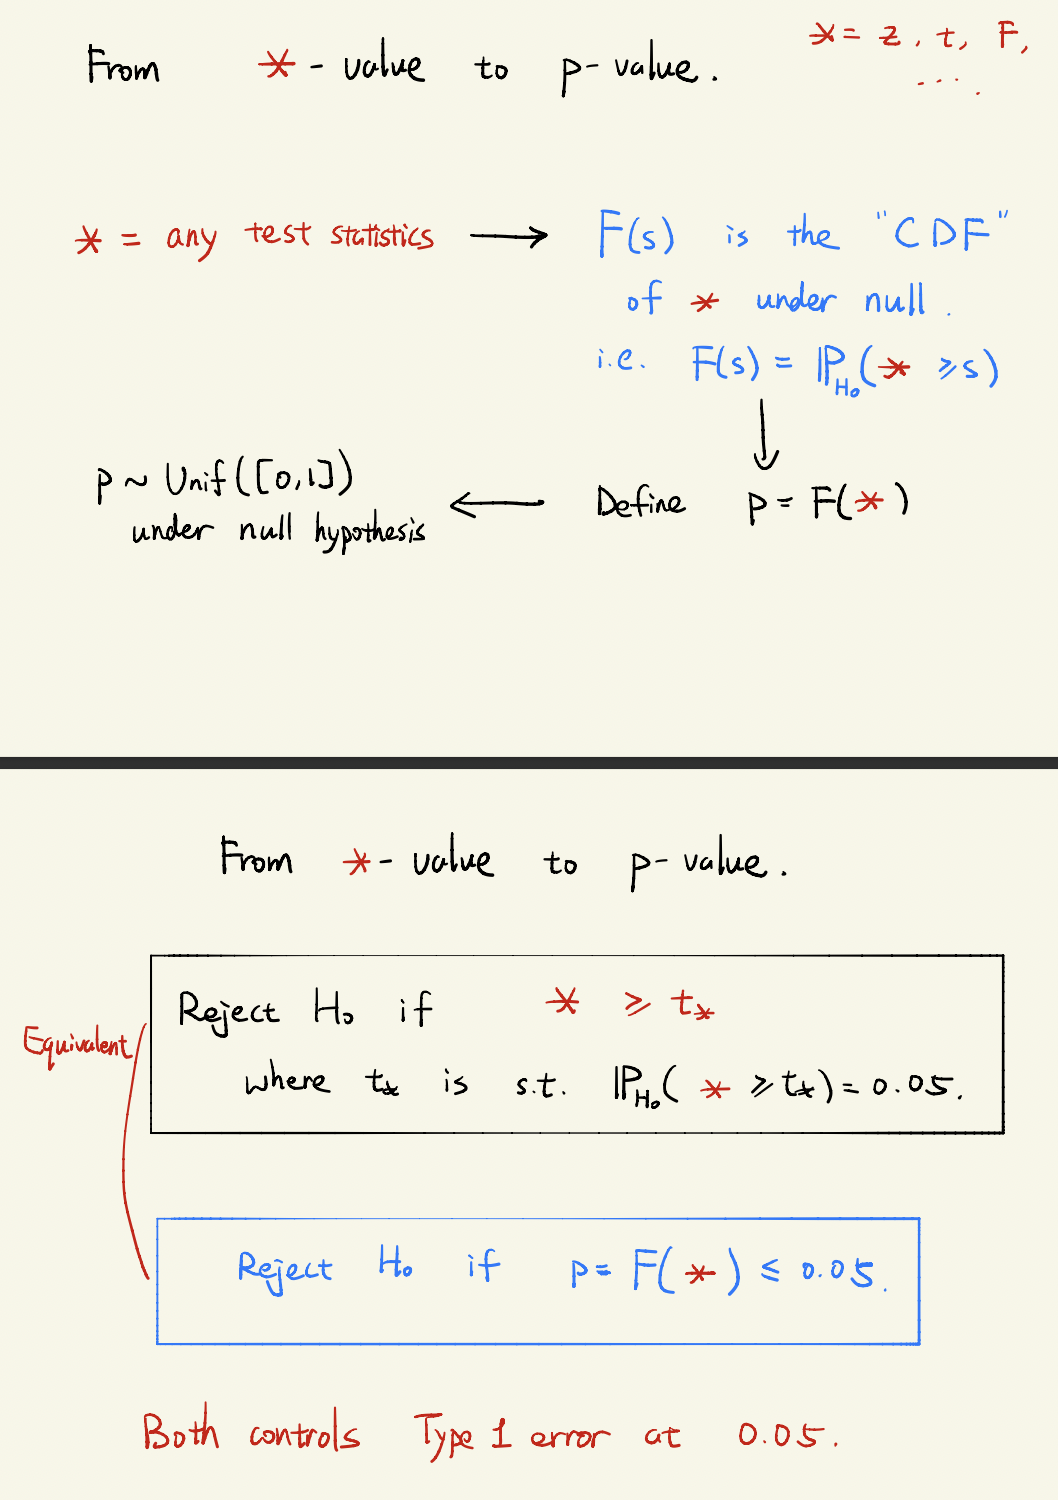 From *-value to p-value.
* = z, t, F,
....
* = any test statistics → F(s) is the "CDF"
of * under null.
i.e. F(s) = ℙ_H₀(* ≥ s)
↓
p ~ Unif([0,1]) ← Define p = F(*)
under null hypothesis
From *-value to p-value.
Reject H₀ if * ≥ t_*
Equivalent
where t_* is s.t. ℙ_H₀(* ≥ t_*) = 0.05.
Reject H₀ if p = F(*) ≤ 0.05.
Both controls Type 1 error at 0.05.